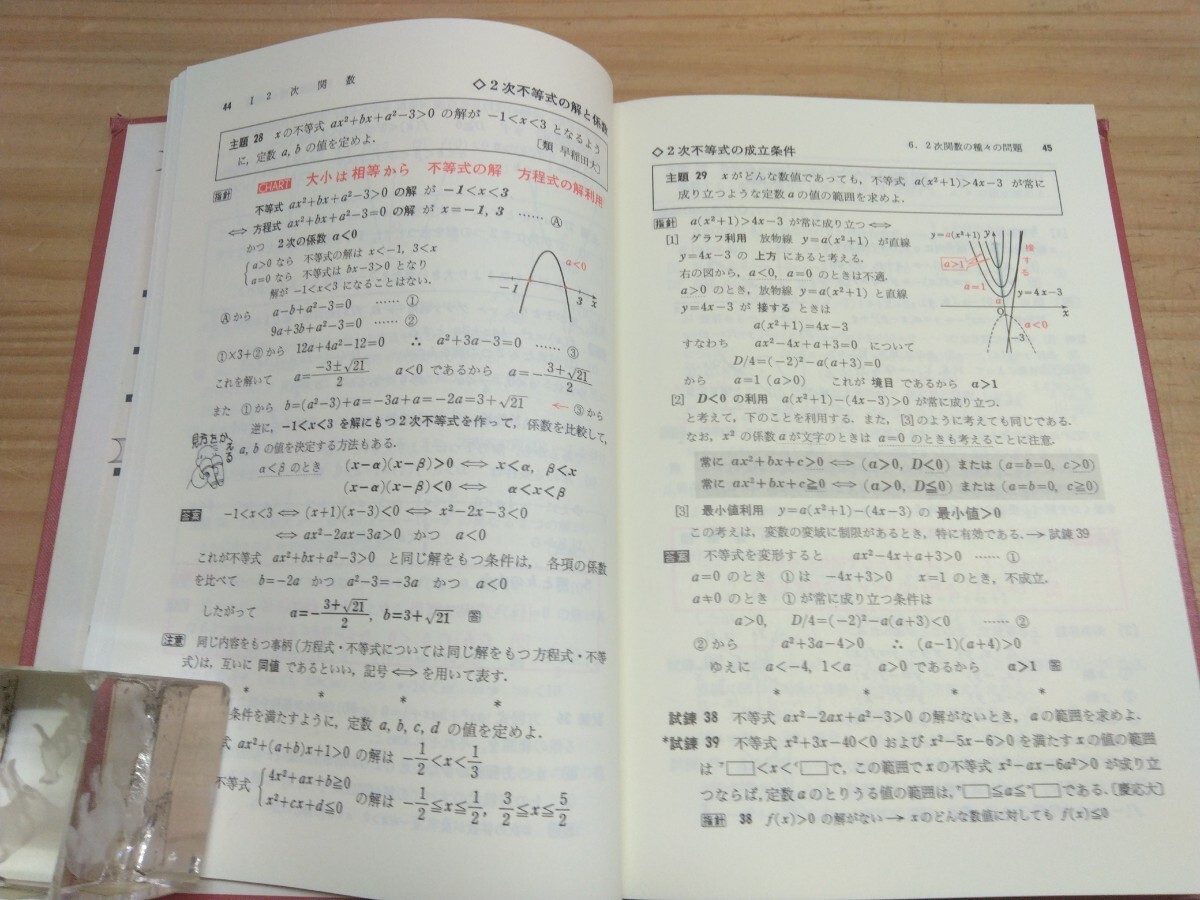 44 1 2 次 関 数
◇2次不等式の解と係数
主題 28 xの不等式 ax²+bx+a²-3>0 の解が -1<x<3 となるよう
に, 定数 a, b の値を定めよ. 〔類 早稲田大〕
指針 CHART 大小は相等から 不等式の解 方程式の解利用
不等式 ax²+bx+a²-3>0 の解 が -1<x<3
⇔ 方程式 ax²+bx+a²-3=0 の解 が x=-1, 3 …… Ⓐ
かつ 2次の係数 a<0
a>0 なら 不等式の解は x<-1, 3<x
a=0 なら 不等式は bx-3>0 となり
解が -1<x<3 になることはない.
a<0
-1
3
x
Ⓐから a-b+a²-3=0 …… ①
9a+3b+a²-3=0 …… ②
①×3+②から 12a+4a²-12=0 ∴ a²+3a-3=0 …… ③
これを解いて a=(-3±√21)/2 a<0 であるから a=-(3+√21)/2
また ①から b=(a²-3)+a=-3a+a=-2a=3+√21 ← ③から
逆に, -1<x<3 を解にもつ2次不等式を作って, 係数を比較して,
a, b の値を決定する方法もある.
見方をかえる
α<β のとき (x-α)(x-β)>0 ⇔ x<α, β<x
(x-α)(x-β)<0 ⇔ α<x<β
答案 -1<x<3 ⇔ (x+1)(x-3)<0 ⇔ x²-2x-3<0
⇔ ax²-2ax-3a>0 かつ a<0
これが不等式 ax²+bx+a²-3>0 と同じ解をもつ条件は, 各項の係数
を比べて b=-2a かつ a²-3=-3a かつ a<0
したがって a=-(3+√21)/2, b=3+√21 答
注意 同じ内容をもつ事柄(方程式・不等式については同じ解をもつ方程式・不等
式)は, 互いに 同値 であるといい, 記号 ⇔ を用いて表す.
* * * *
条件を満たすように, 定数 a, b, c, d の値を定めよ.
式 ax²+(a+b)x+1>0 の解は -1/2<x<1/3
不等式 { 4x²+ax+b≧0
x²+cx+d≦0 の解は -1/2≦x≦1/2, 3/2≦x≦5/2
6. 2次関数の種々の問題 45
◇2次不等式の成立条件
主題 29 xがどんな数値であっても, 不等式 a(x²+1)>4x-3 が常に
成り立つような定数 a の値の範囲を求めよ.
指針 a(x²+1)>4x-3 が常に成り立つ ⇔
[1] グラフ利用 放物線 y=a(x²+1) が直線
y=4x-3 の 上方 にあると考える.
右の図から, a<0, a=0 のときは不適.
a>0 のとき, 放物線 y=a(x²+1) と直線
y=4x-3 が 接する ときは
a(x²+1)=4x-3
すなわち ax²-4x+a+3=0 について
D/4=(-2)²-a(a+3)=0
から a=1 (a>0) これが 境目 であるから a>1
y=a(x²+1)
y
接する
a>1
a=1
y=4x-3
a
O
x
a<0
-3
[2] D<0 の利用 a(x²+1)-(4x-3)>0 が常に成り立つ.
と考えて, 下のことを利用する. また, [3]のように考えても同じである.
なお, x² の係数 a が文字のときは a=0 のときも考えることに注意.
常に ax²+bx+c>0 ⇔ (a>0, D<0) または (a=b=0, c>0)
常に ax²+bx+c≧0 ⇔ (a>0, D≦0) または (a=b=0, c≧0)
[3] 最小値利用 y=a(x²+1)-(4x-3) の 最小値>0
この考えは, 変数の変域に制限があるとき, 特に有効である. → 試錬39
答案 不等式を変形すると ax²-4x+a+3>0 …… ①
a=0 のとき ①は -4x+3>0 x=1 のとき, 不成立.
a≠0 のとき ①が常に成り立つ条件は
a>0, D/4=(-2)²-a(a+3)<0 …… ②
②から a²+3a-4>0 ∴ (a-1)(a+4)>0
ゆえに a<-4, 1<a a>0 であるから a>1 答
* * * *
試錬 38 不等式 ax²-2ax+a²-3>0 の解がないとき, a の範囲を求めよ.
*試錬 39 不等式 x²+3x-40<0 および x²-5x-6>0 を満たす x の値の範囲
は ア□<x<イ□で, この範囲で x の不等式 x²-ax-6a²>0 が成り立
つならば, 定数 a のとりうる値の範囲は, ウ□≦a≦エ□である. 〔慶応大〕
指針 38 f(x)>0 の解がない → x のどんな数値に対しても f(x)≦0